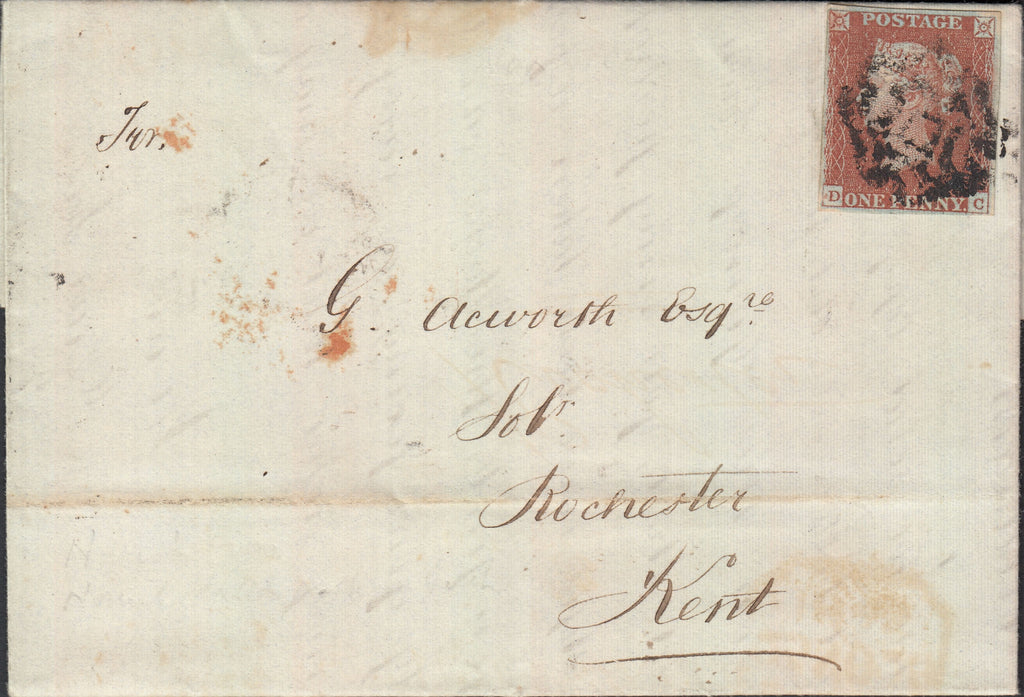 POSTAGE
D ONE PENNY. C
G. Acworth Esqre
Solr
Rochester
Kent